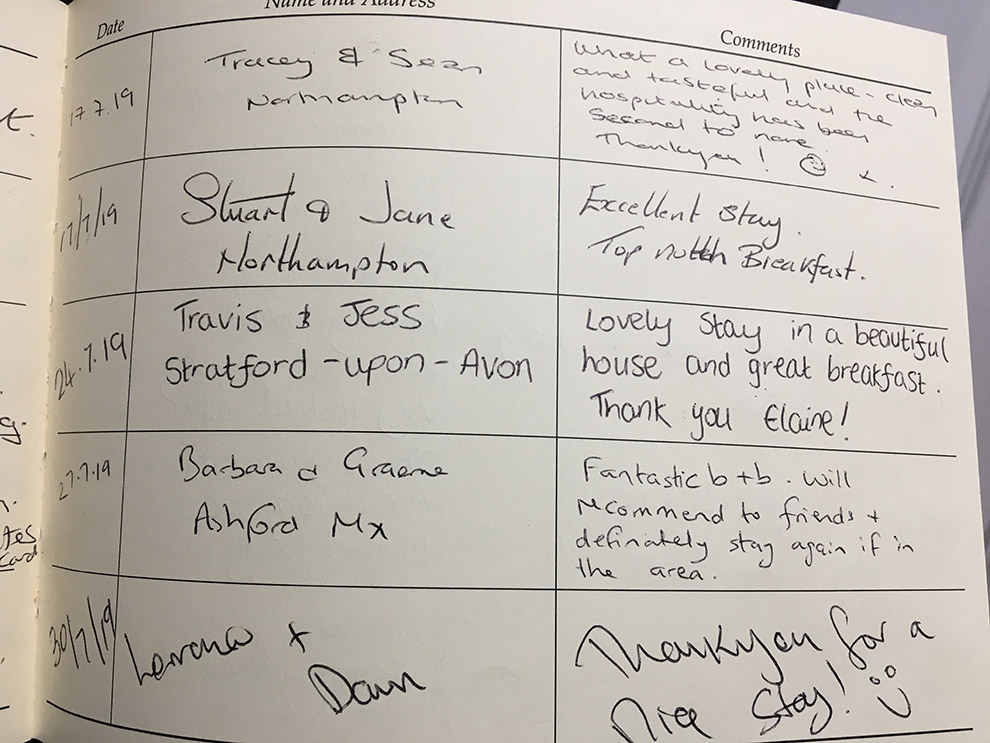 Name and Address
Date
Comments
t.
17.7.19
Tracey & Sean
Northampton
What a lovely place - clean
and tasteful and the
hospitality has been
Second to none
Thankyou ! x.
17/7/19
Stuart & Jane
Northampton
Excellent Stay.
Top notch Breakfast.
24.7.19
Travis & Jess
Stratford - upon - Avon
Lovely Stay in a beautiful
house and great breakfast.
Thank you Elaine!
27.7.19
Barbara & Graeme
Ashford Mx
Fantastic b + b. will
recommend to friends +
definately stay again if in
the area.
30/7/19
+
Dawn
Thankyou for a
Nice Stay!